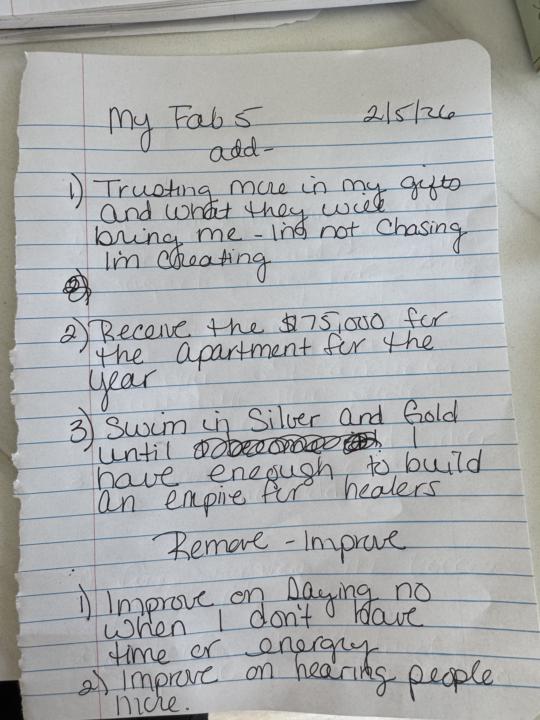 My Fab 5 2/5/26
add-
1) Trusting more in my gifts
and what they will
bring me - Im not Chasing
Im Creating
2)
2) Receive the $75,000 for
the apartment for the
year
3) Swim in Silver and Gold
until I
have enough to build
an empire for healers
Remove - Improve
1) Improve on Saying no
when I don't have
time or energy
2) Improve on hearing people
more.